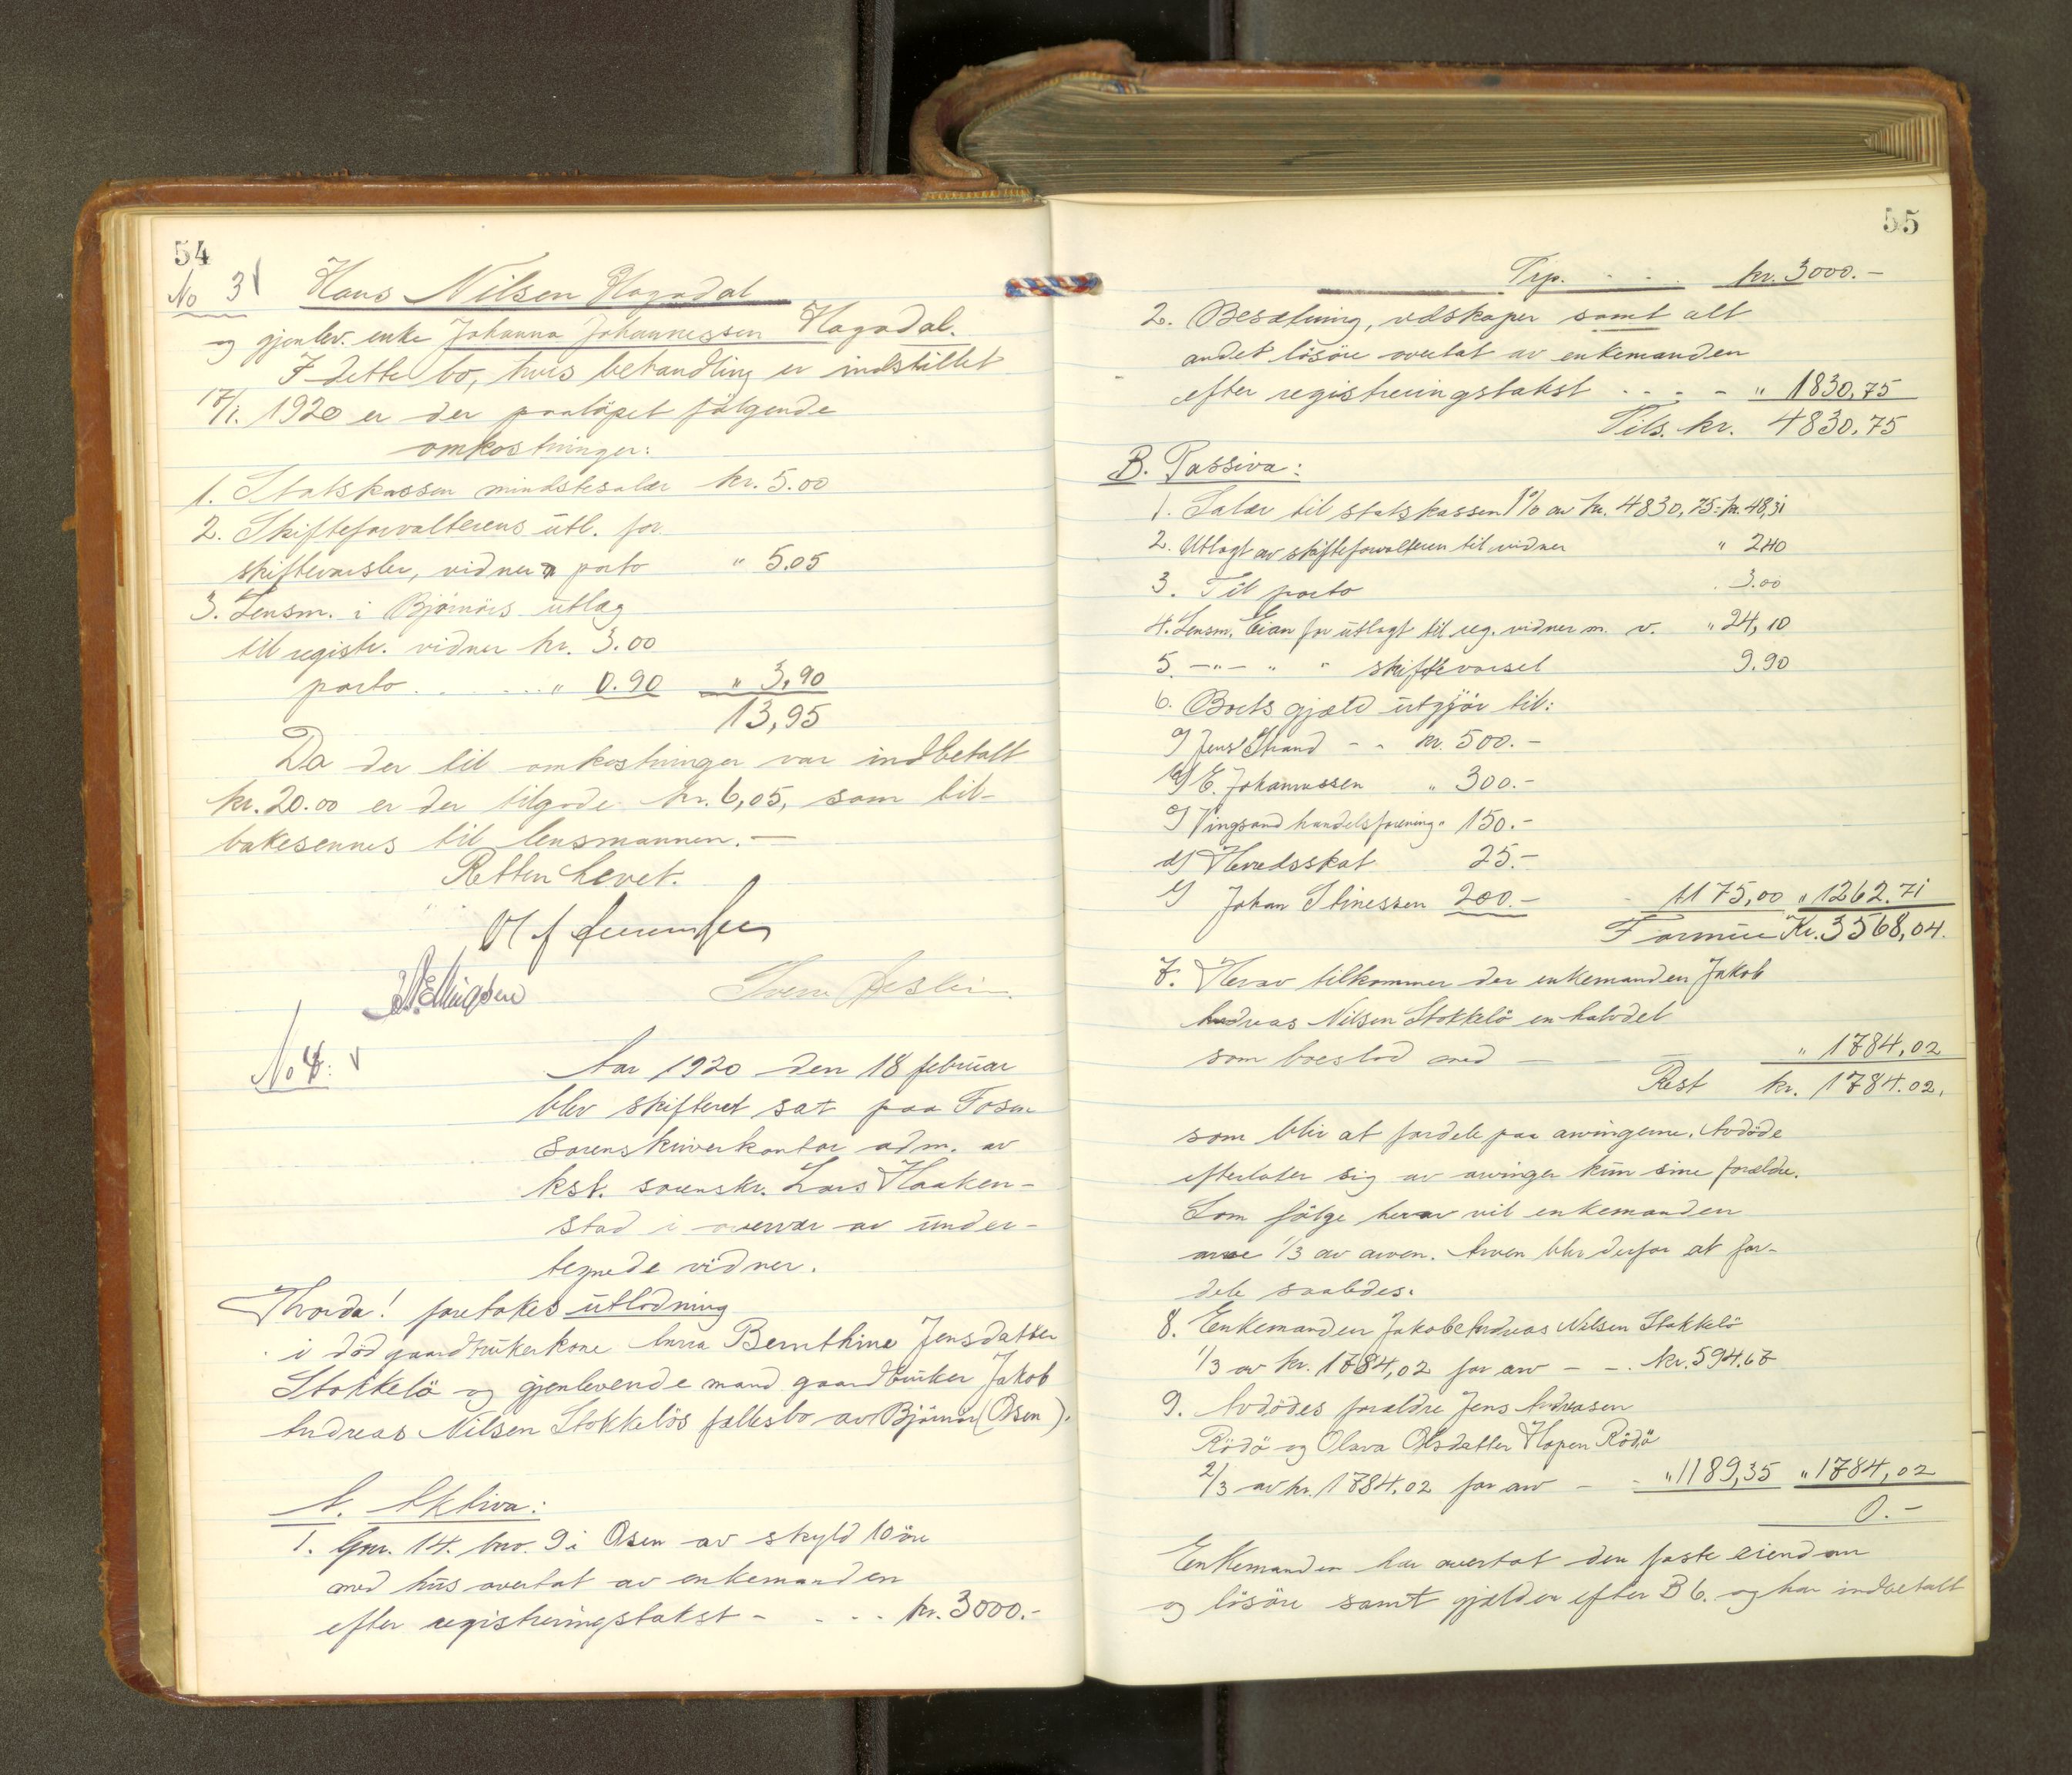 54
No 3
Hans Nilsen Hagadal
og gjenlev. enke Johanna Johannessen Hagadal.
I dette bo, hvis behandling er indstillet
17/1. 1920 er der paaløpet følgende
omkostninger:
1. Statskassen mindstesalær kr. 5.00
2. Skifteforvalterens utl. for
skiftevarsler, vidner porto " 5.05
3. Lensm. i Bjørnørs utlæg
til registr. vidner kr. 3.00
porto . . . . . " 0.90 " 3,90
13,95
Da der til omkostninger var indbetalt
kr. 20.00 er der tilgode kr. 6,05, som til-
bakesennes til lensmannen. —
Retten hevet.
No 4:
Aar 1920 den 18 februar
blev skifteret sat paa Fosen
sorenskriverkontor adm. av
kst. sorenskr. Lars Haaken-
stad i overvær av under-
tegnede vidner.
Hvorda! foretokes utlodning
i død gaardbrukerkone Anna Bernthine Jensdatter
Stokkelö og gjenlevende mand gaardbruker Jakob
Andreas Nilsen Stokkelös fællesbo av Bjørnør (Osen).
A. Aktiva:
1. Gnr. 14. bno. 9 i Osen av skyld 10 øre
med hus overtat av enkemanden
efter registreringstakst - . . . kr. 3000.-
55
Trp. . . . kr. 3000.-
2. Besætning, redskaper samt alt
andet løsøre overtat av enkemanden
efter registreringstakst . . . - " 1830,75
Tils. kr. 4830,75
B. Passiva:
1. Salær til statskassen 1% av kr. 4830,75 = kr. 48,31
2. Utlagt av skifteforvalteren til vidner " 2.40
3. Til porto . 3.00
4. Lensm. Eian for utlagt til reg. vidner m. v. " 24,10
5. -"- " " skiftevarsel 9.90
6. Boets gjæld utgjør til:
a) Jens Strand - - kr. 500.-
b) E. Johannessen " 300.-
c) Vingsand handelsforening " 150.-
d) Herredsskat 25.-
e) Johan Stinessen 200.- - 1175,00 " 1262.71
Formue Kr. 3568,04.
7. Herav tilkommer der enkemanden Jakob
Andreas Nilsen Stokkelö en halvdel
som boeslod med — — " 1784,02
Rest kr. 1784.02.
som blir at fordele paa arvingerne. Avdøde
efterlater sig av arvinger kun sine forældre.
Som følge herav vil enkemanden
arve 1/3 av arven. Arven blir derfor at for-
dele saaledes.
8. Enkemanden Jakob Andreas Nilsen Stokkelö
1/3 av kr. 1784,02 for arv - -. kr. 594.67
9. Avdødes forældre Jens Andreasen
Rödö og Olava Olsdatter Hopen Rödö
2/3 av kr. 1784.02 for arv - - " 1189,35 " 1784,02
0.-
Enkemanden har overtat den faste eiendom
og løsøre samt gjælden efter B 6. og har indbetalt